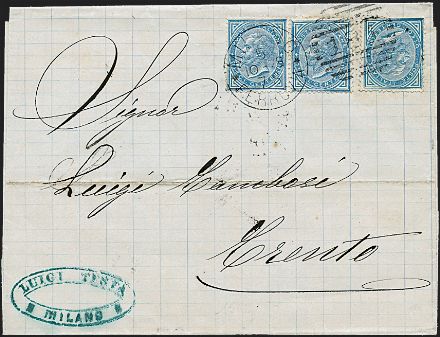 Signor
Luigi Tambosi
Trento
LUIGI TESTA
MILANO